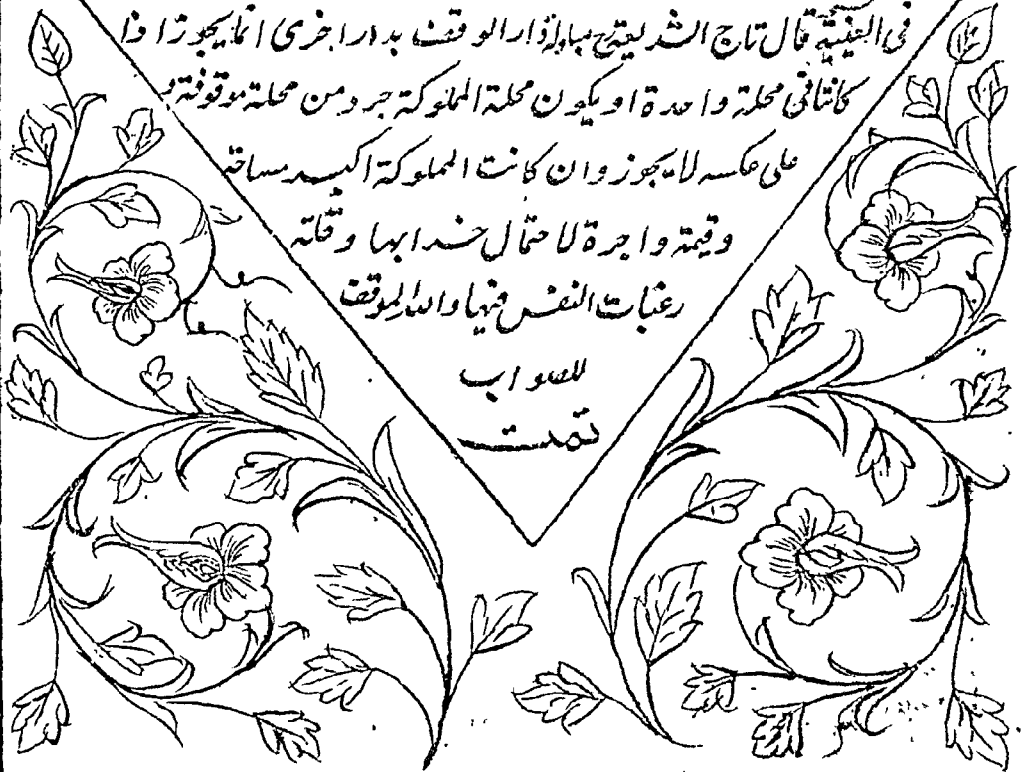 فى القنية قال تاج الشريعة مبادلة دار الوقف بدار اخرى انما يجوز اذا
كانتا فى محلة واحدة او يكون محلة المملوكة خير من محلة موقوفة و
على عكسه لا يجوز وان كانت المملوكة اكبر مساحة
وقيمة واجرة لاحتمال خرابها وقلة
رغبات النفس فيها والله الموفق
للصواب
تمت